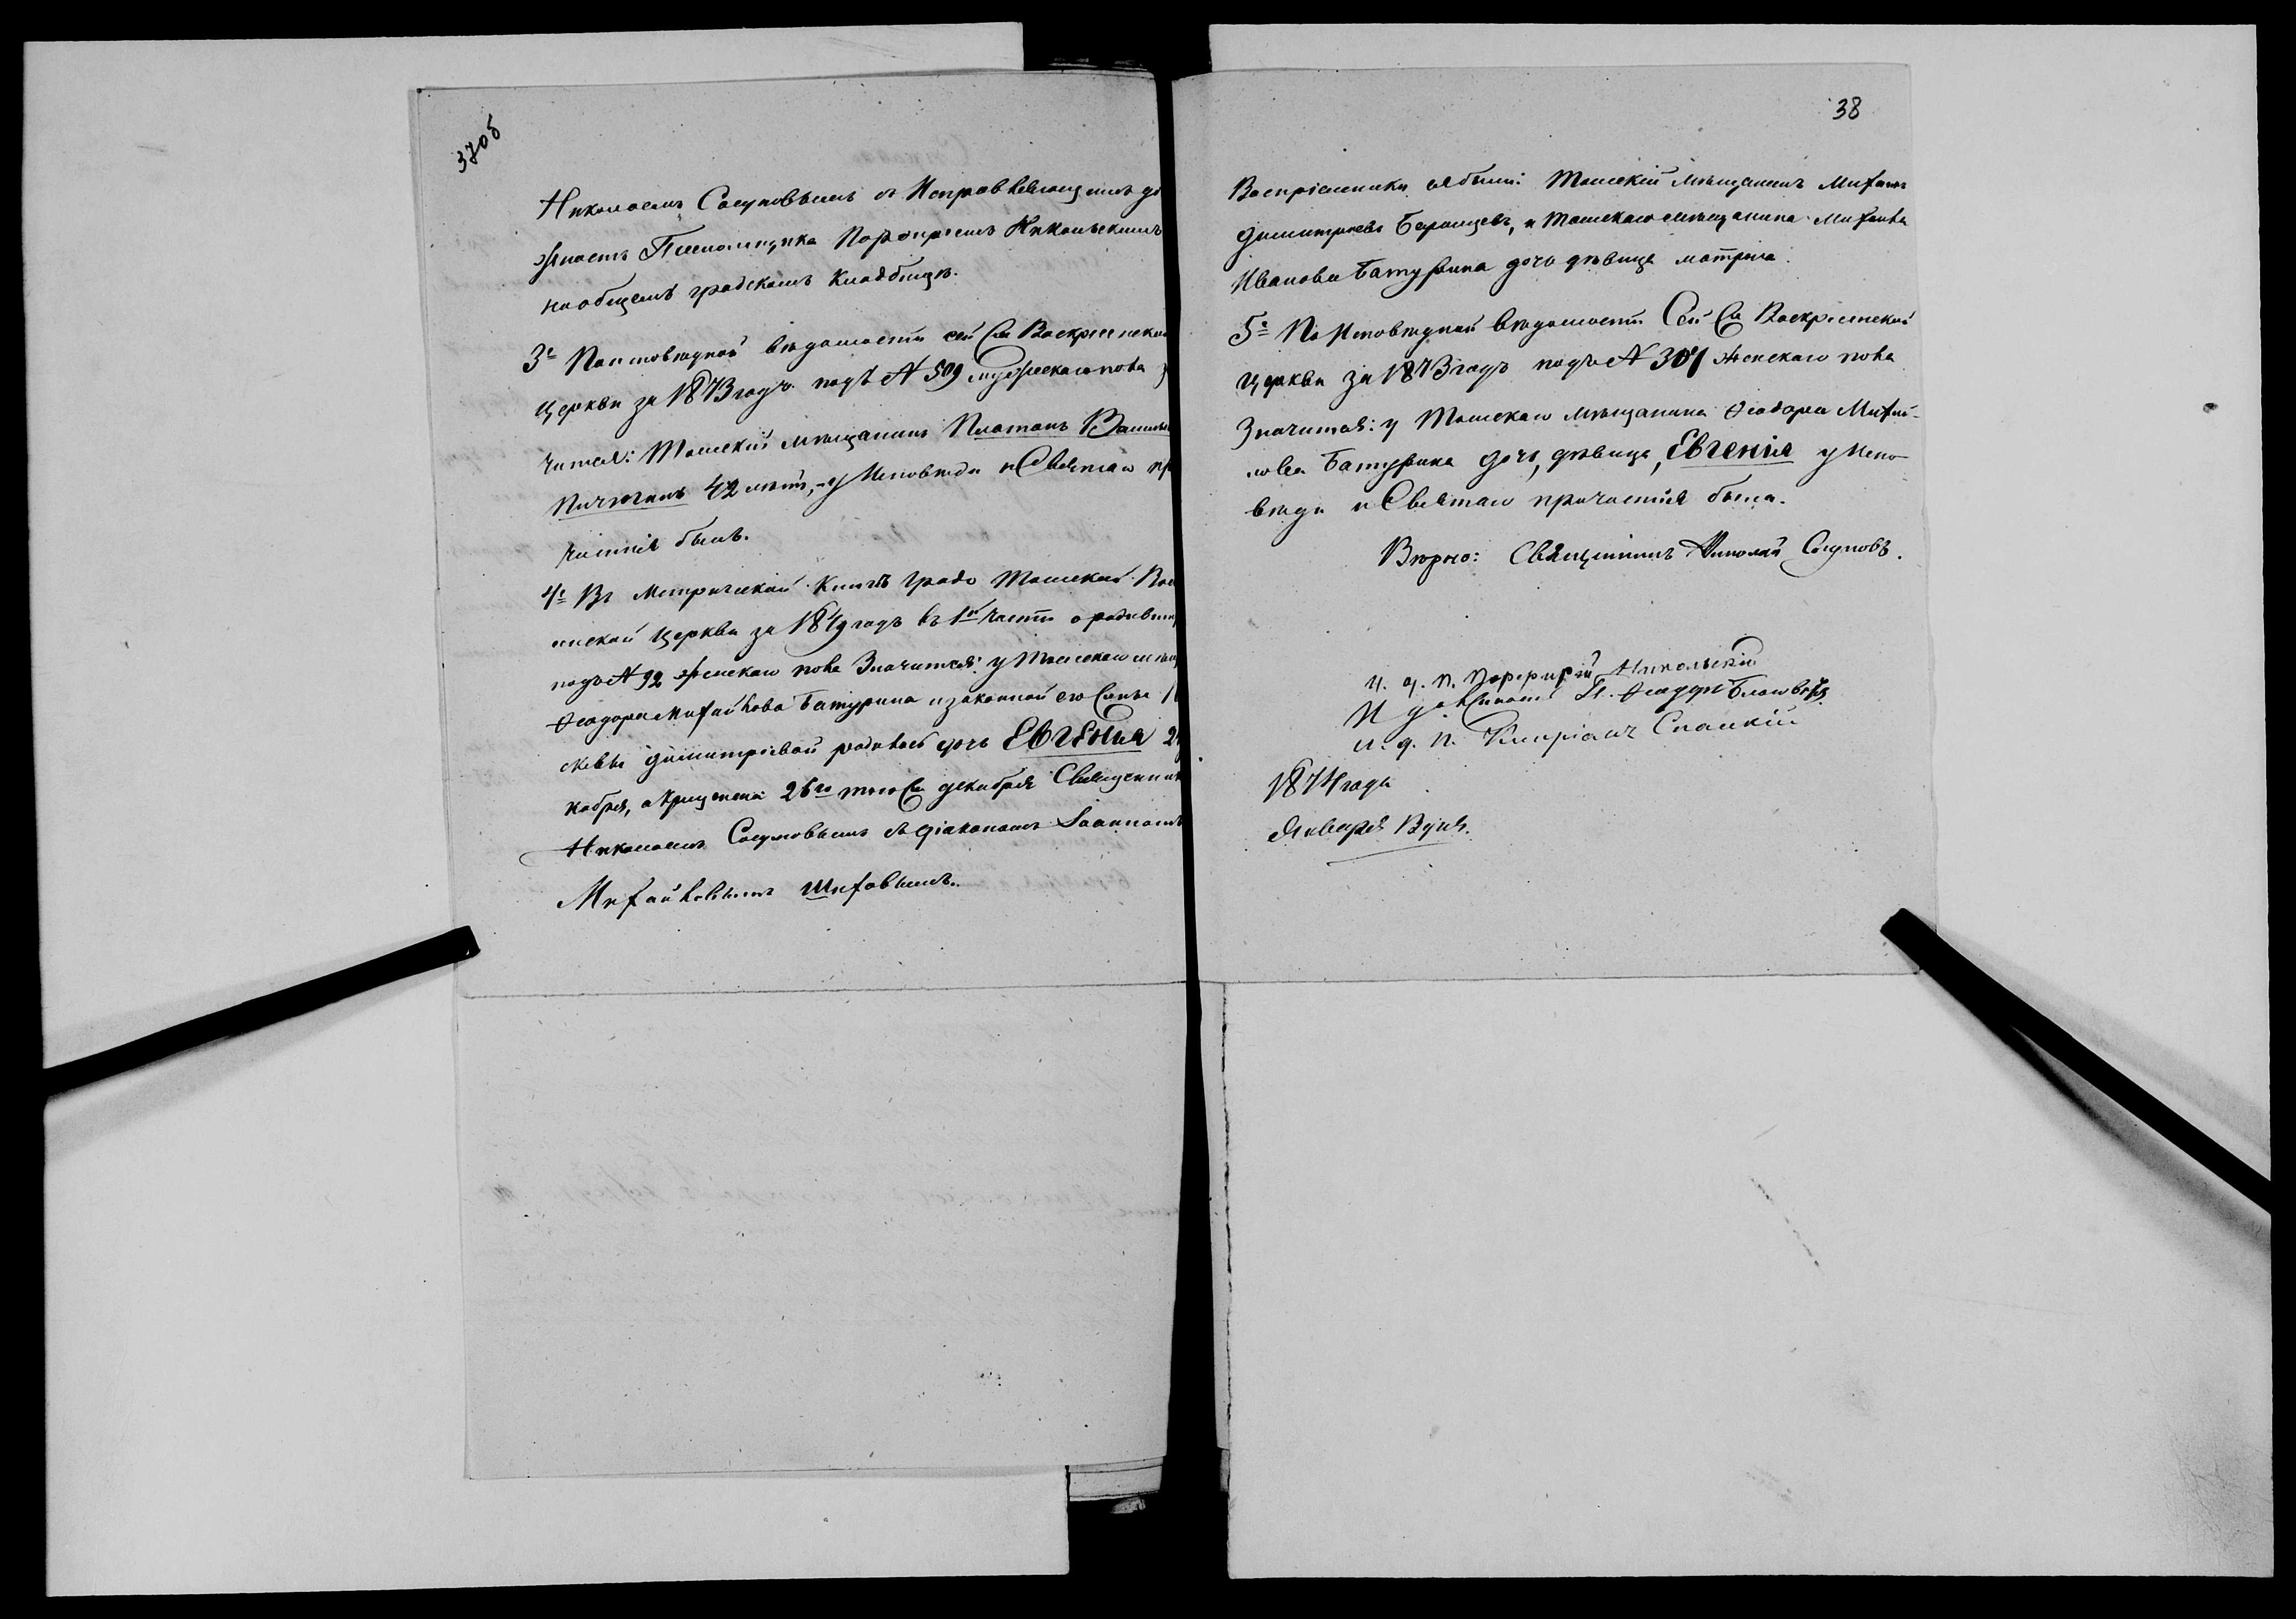 37об
Николаемъ Сосуновымъ съ Исправляющимъ до
жность Псаломщика Порфиріемъ Никольскимъ
на общемъ градскомъ кладбищѣ.
3е По исповѣдной вѣдомости сей же Воскресенской
церкви за 1873 годъ подъ № 509 мужескаго пола з
чится: Томскій мѣщанинъ Платонъ Василье
Пичугинъ 42 лѣтъ, – у Исповѣди и Святаго пр
частія былъ.
4е Въ Метрической Книгѣ градо Томской Вос
енской церкви за 1849 годъ въ 1й части о родивш
подъ № 92 женскаго пола Значится: у Томскаго мѣщ
Ѳеодора Михайлова Батурина и законной его жены
скевы Димитріевой родилась дочь Евгенія 2
кабря, а крещена 26го того же декабря Священник
Николаемъ Сосуновымъ съ діакономъ Іоанномъ
Михайловымъ Шиховымъ.
38
Воспріемники были: Томскій мѣщанинъ Михаилъ
Димитріевъ, и Томскаго мѣщанина Михаила
Иванова Батурина дочь дѣвица
5е По Исповѣдной вѣдомости Сей же Воскресенской
церкви за 1873 годъ подъ № 307 женскаго пола
Значится: у Томскаго мѣщанина Ѳеодора Михай-
лова Батурина дочь, дѣвица, Евгенія у Испо-
вѣди и Святаго причастія была.
Вѣрно: Священникъ Николай Сосуновъ.
И. д. п. Порфирій Никольскій
И должность П. Ѳеодоръ
И. д. п. Кипріанъ Спасскій
1874 года
Января В дня.